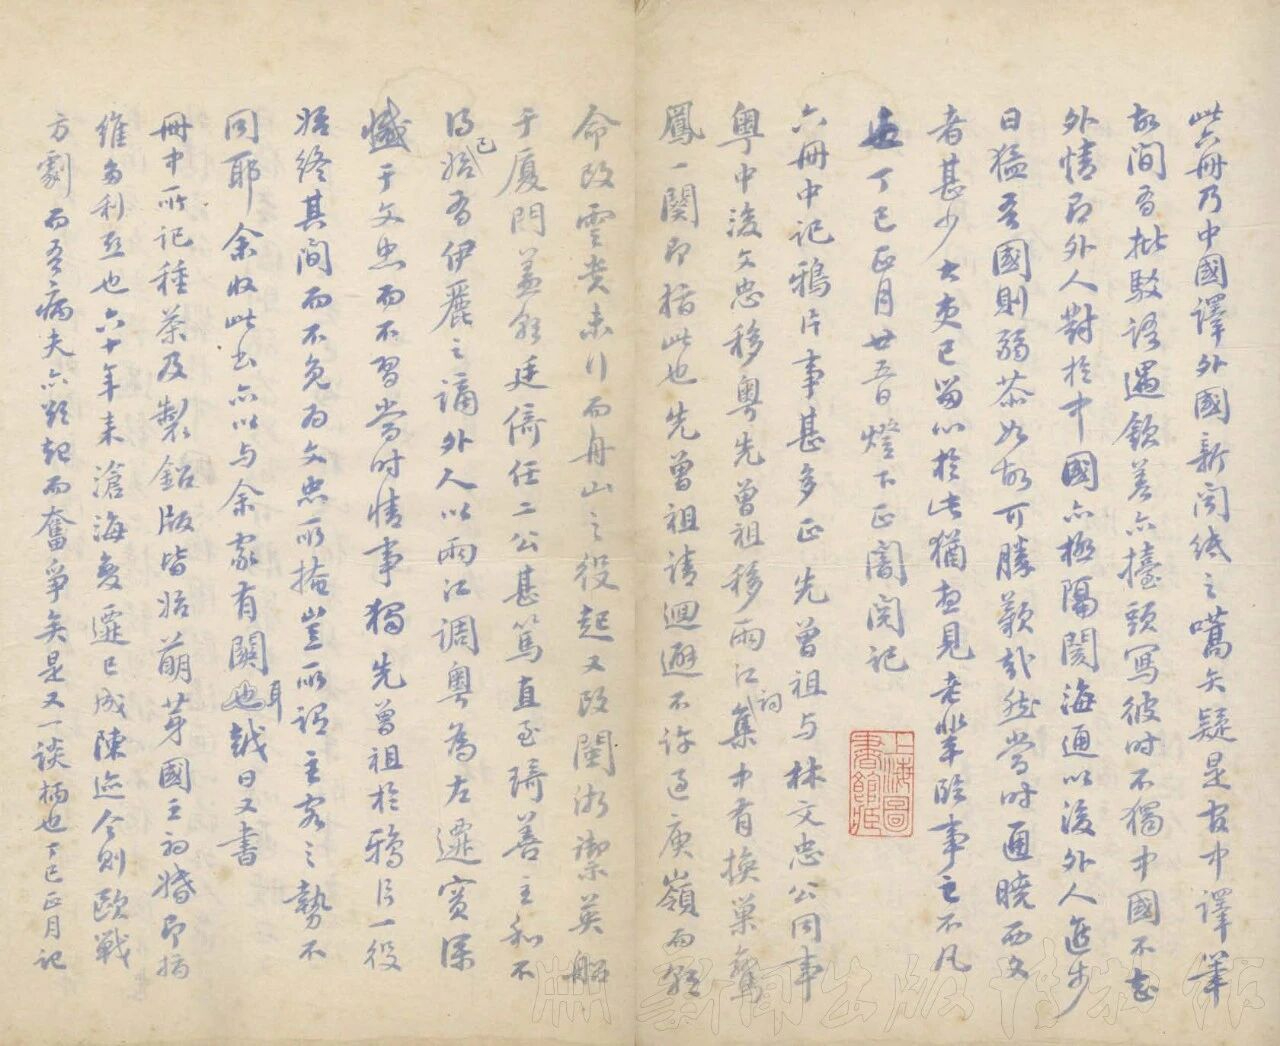 此六冊乃中國譯外國新聞紙之嚆矢疑是官中譯筆
故間有批駁語遇欽差亦擡頭寫彼時不獨中國不悉
外情即外人對於中國亦極隔閡海通以後外人進步
日猛吾國則弱茶如故可勝歎哉然當时通曉西文
者甚少大吏已留心於此猶想見老輩臨事之不凡
也丁巳正月廿五日燈下正闇閱記
六冊中記鴉片事甚多正先曾祖与林文忠公同事
粵中後文忠移粵先曾祖移兩江詞集中有換巢鸞
鳳一闋即指此也先曾祖請迴避不許過庚嶺而
命改雲貴未行而舟山之役起又改閩浙禦英船
于厦門蓋鄧廷儕任二公甚篤直至琦善主和不
得已始有伊麗之謫外人以兩江調粵為左遷實深
憾于文忠而不習當时情事獨先曾祖於鴉片一役
始終其間而不免為文忠所掩豈所謂主客之勢不
同耶余收此书亦以与余家有關也耳越日又書
冊中所記種茶及製鉛版皆始萌芽國王初婚即指
維多利亞也六十年来滄海变遷已成陳迹今則歐戰
方劇而吾病夫亦欲起而奮爭矣是又一談柄也丁巳正月記
上海圖
書館藏